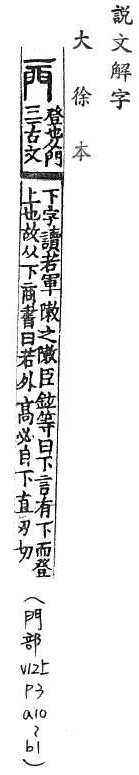 說文解字
大徐本
登也从門
二二古文
下字讀若軍敶之敶臣鉉等曰下言自下而登
上也故从下商書曰若升高必自下直刃切
(門部 V12上 P3 a10~b1)